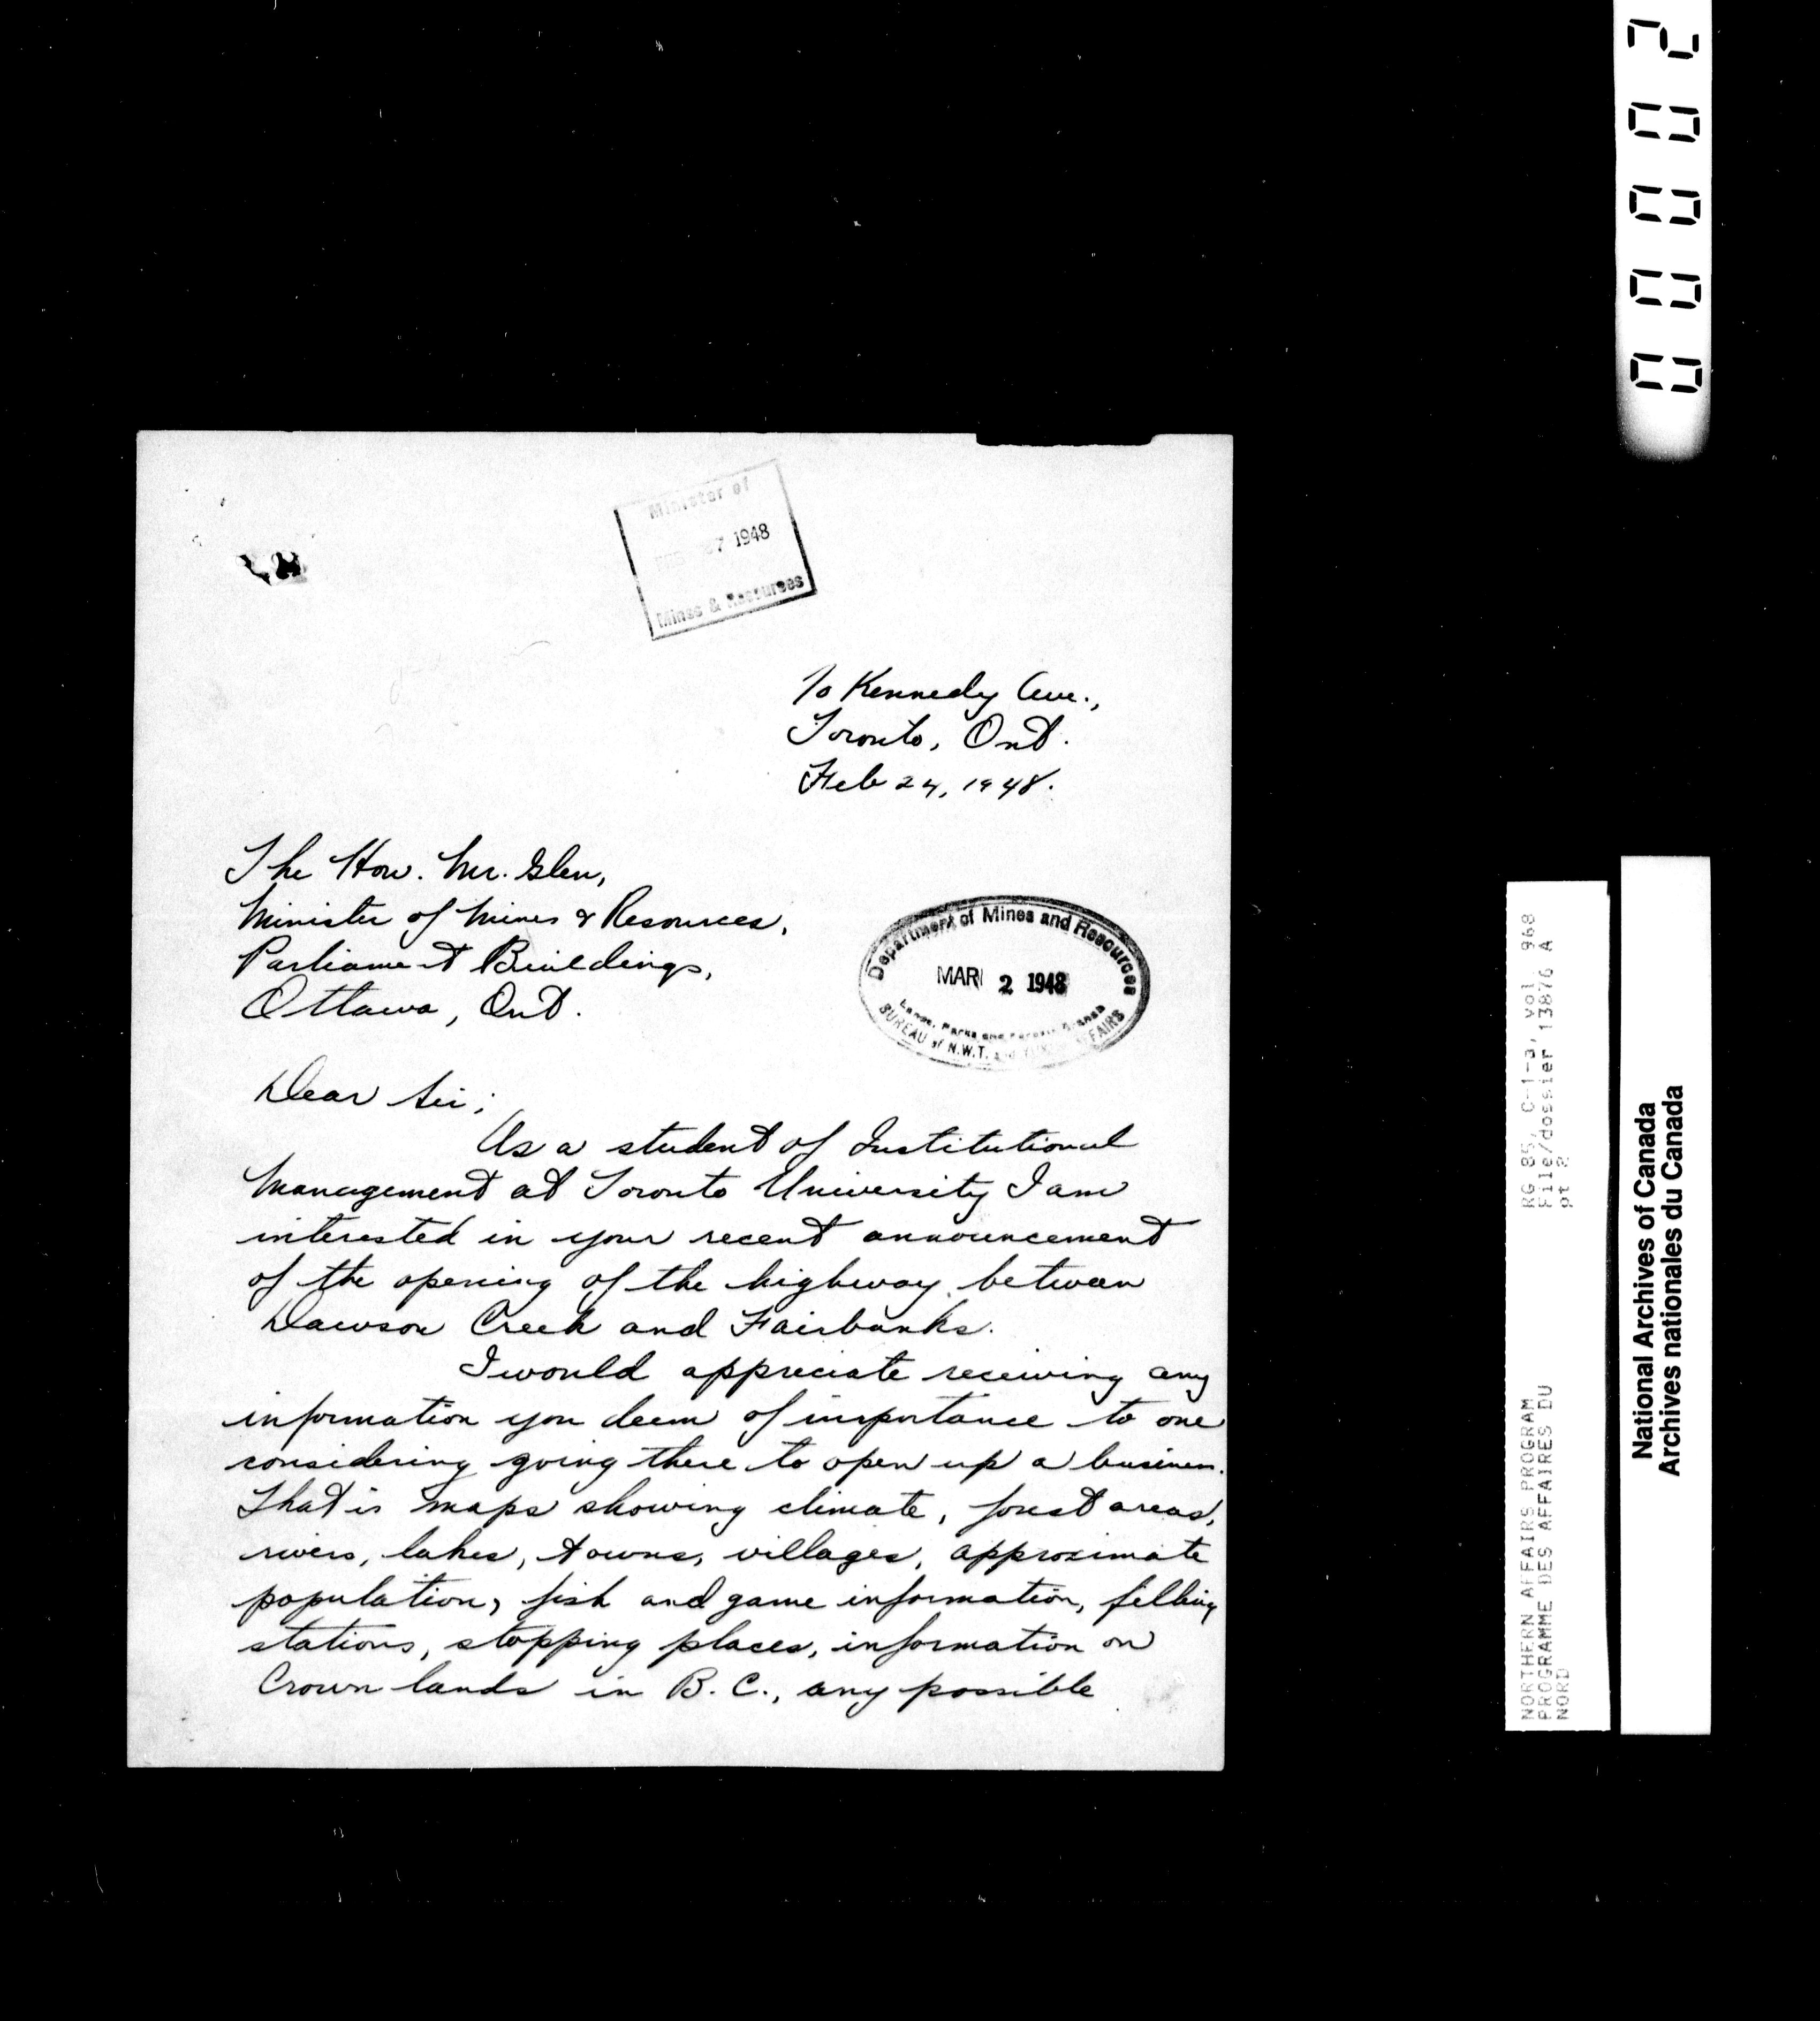 Minister of
FEB 27 1948
Mines & Resources
10 Kennedy Ave.,
Toronto, Ont.
Feb 24, 1948.
The Hon. Mr. Glen,
Minister of Mines & Resources,
Parliament Buildings,
Ottawa, Ont.
Department of Mines and Resources
MAR 2 1948
Lands, Parks and Forests Branch
BUREAU of N.W.T. and YUKON AFFAIRS
Dear Sir;
As a student of Institutional
Management at Toronto University I am
interested in your recent announcement
of the opening of the highway between
Dawson Creek and Fairbanks.
I would appreciate receiving any
information you deem of importance to one
considering going there to open up a business.
That is maps showing climate, forest areas,
rivers, lakes, towns, villages, approximate
population, fish and game information, filling
stations, stopping places, information on
Crown lands in B.C., any possible
00002
RG 85, C-1-a, vol 968
File/dossier 13876 A
pt 2
NORTHERN AFFAIRS PROGRAM
PROGRAMME DES AFFAIRES DU
NORD
National Archives of Canada
Archives nationales du Canada